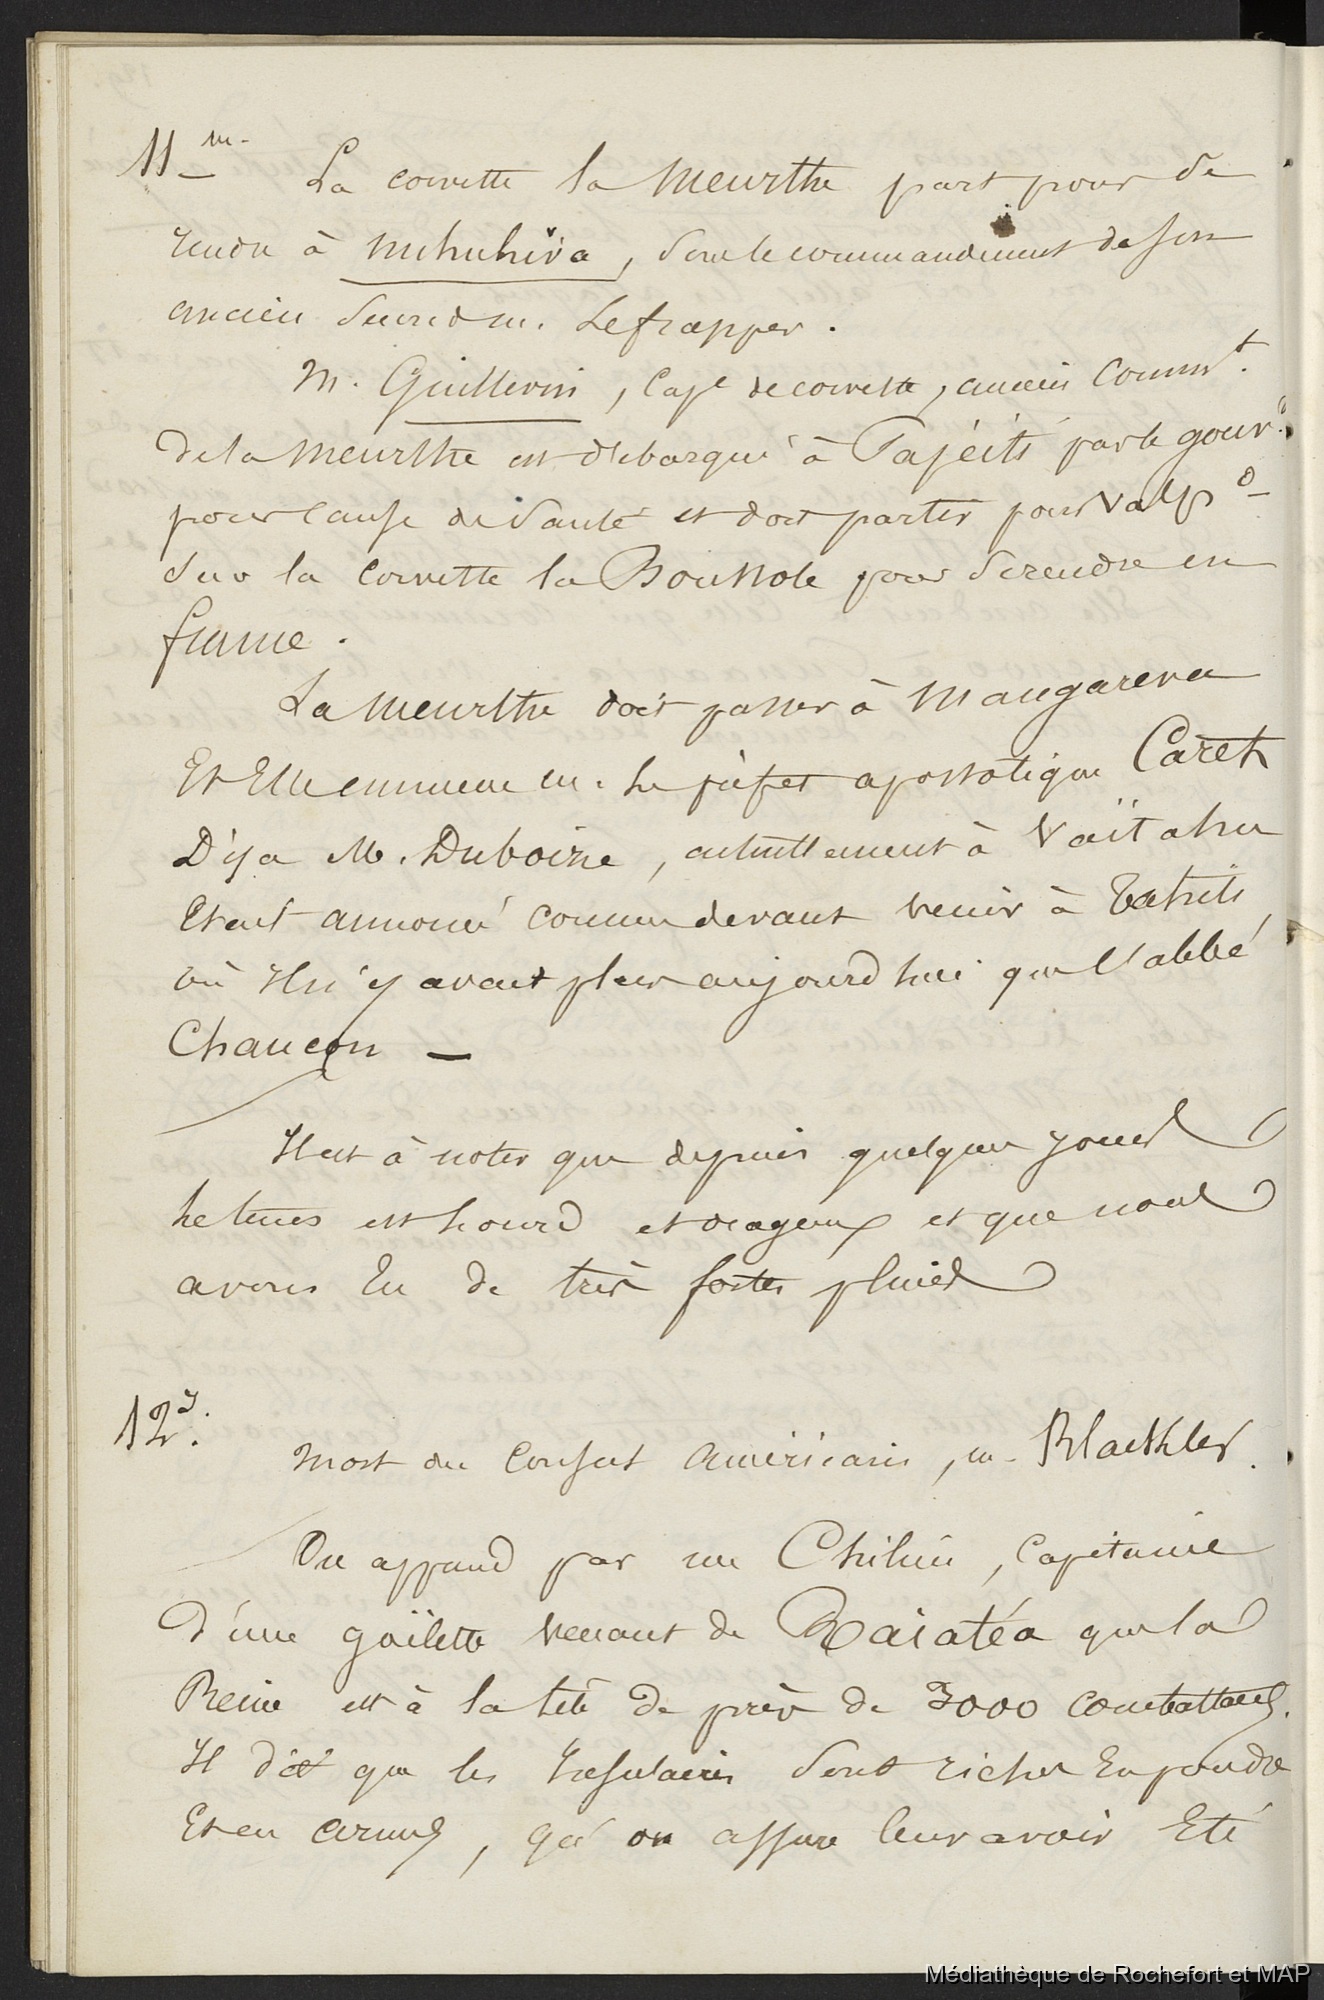 11 m.
La corvette la Meurthe part pour se
rendre à Nuhuhiva, sous le commandement de son
ancien second m. Lefrapper.
M. Guillevin, Cape de corvette, ancien Commt.
de la Meurthe est débarqué à Papéiti par le gouvr.
pour cause de santé et doit partir pour Valpo
sur la corvette la Boussole pour se rendre en
france.
La Meurthe doit passer à Mangareva
Et Elle emmene m. le préfet apostolique Caret
Déja M. Duboize, actuellement à Vaïtahu
Etait annoncé comme devant venir à Tahiti
où il n'y avait plus aujourd'hui que l'abbé
Chaucon —
Il est à noter que depuis quelques jours
le tems est lourd et orageux et que nous
avons Eu de très fortes pluies
12 j.
Mort du Consul américain, m. Blackler.
On apprend par un Chilien, Capitaine
d'une goëlette venant de Raiatéa que la
Reine est à la tête de près de 3000 combattans.
Il dit que les Insulaires sont riches En poudre
Et en armes, qu'on assure leur avoir Eté
Médiathèque de Rochefort et MAP